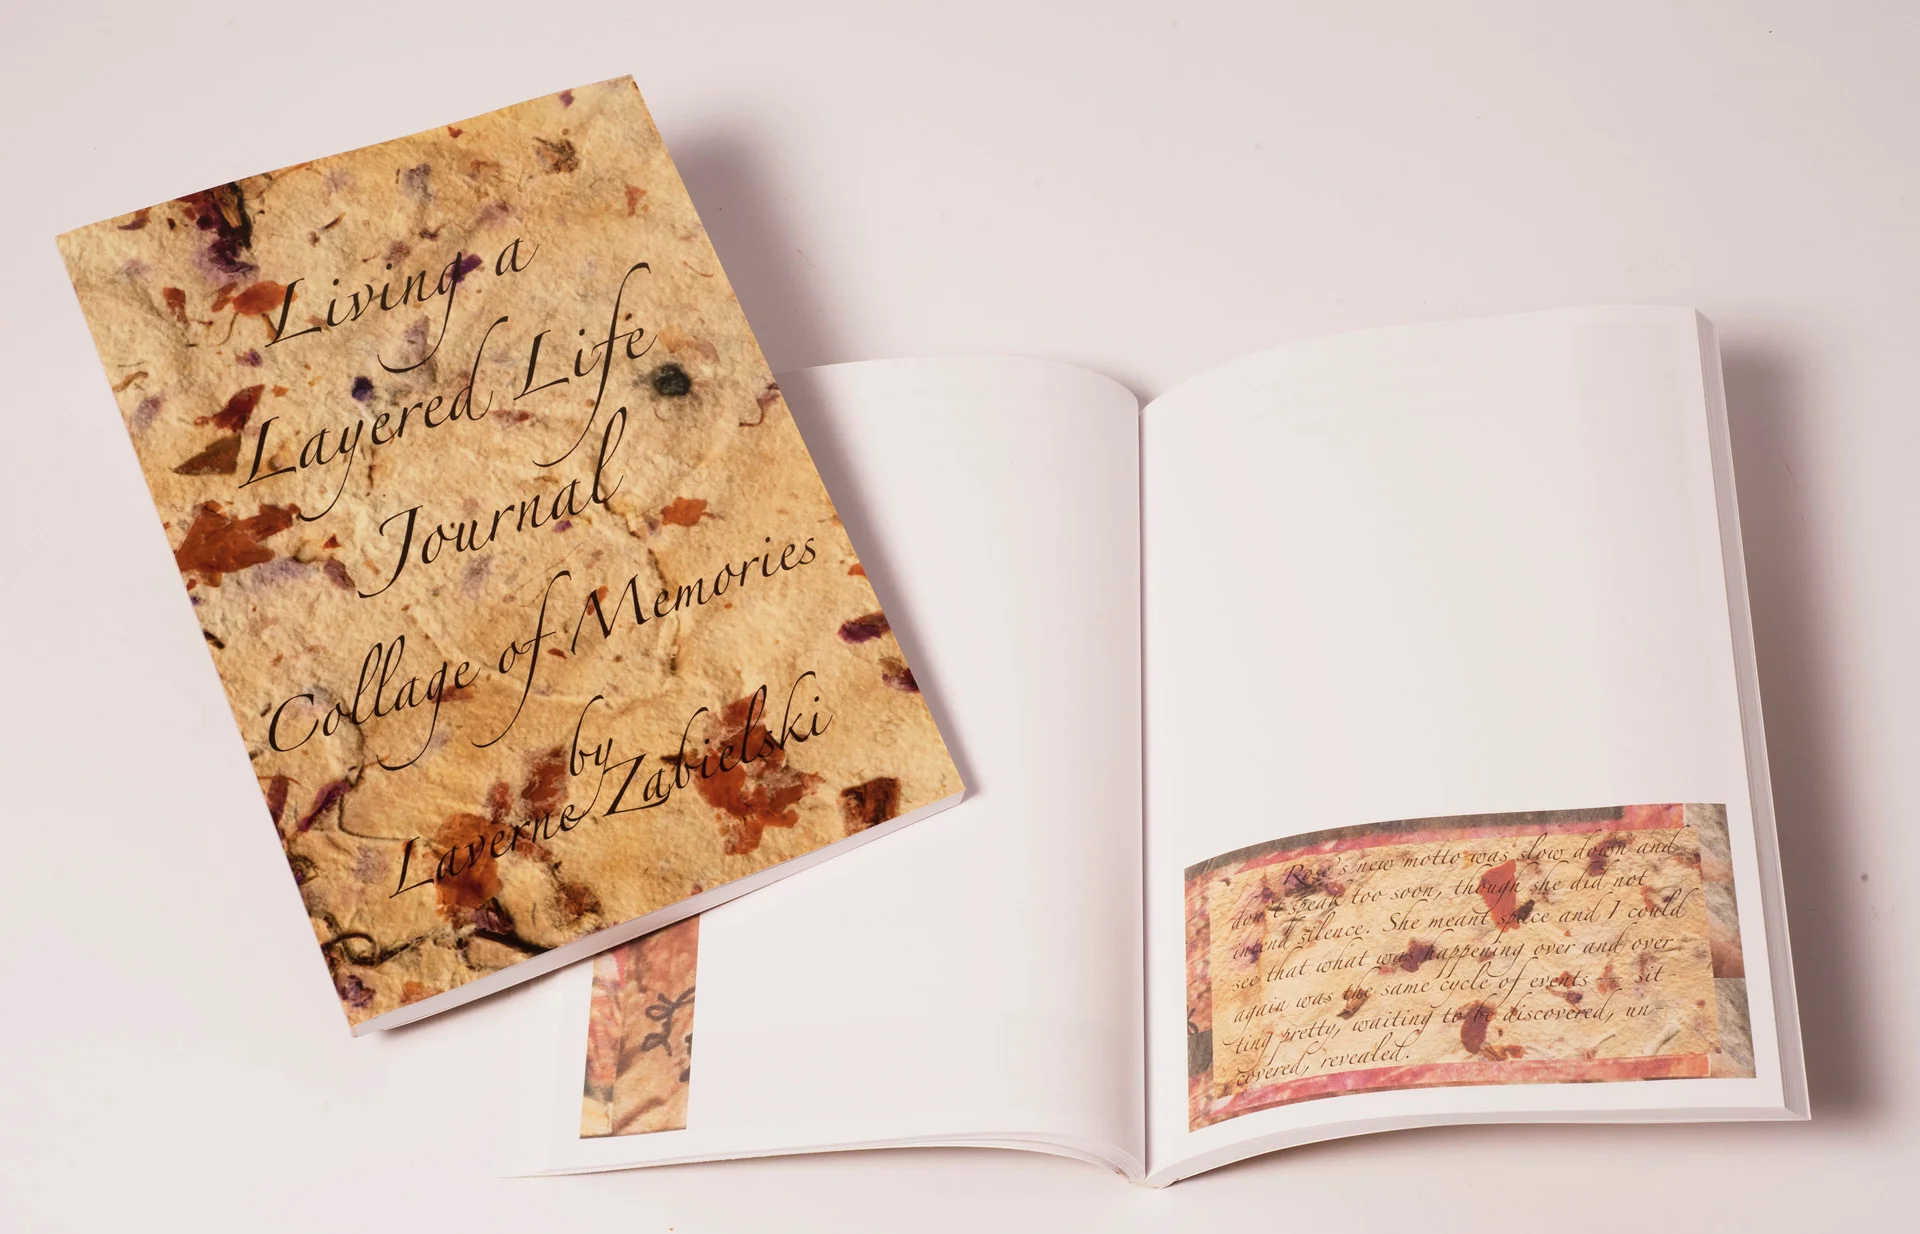 Living a
Layered Life
Journal
Collage of Memories
by
Laverne Zabielski
Rose's new motto was slow down and
don't speak too soon, though she did not
intend silence. She meant space and I could
see that what was happening over and over
again was the same cycle of events — sit-
ting pretty, waiting to be discovered, un-
covered, revealed.